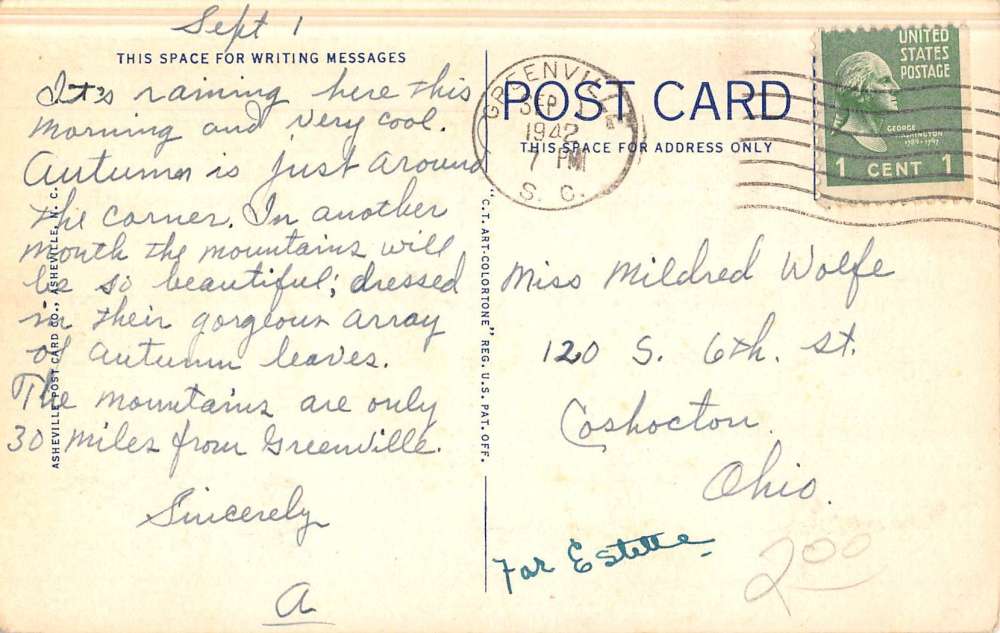 Sept 1
THIS SPACE FOR WRITING MESSAGES
It's raining here this
morning and very cool.
Autumn is just around
the corner. In another
month the mountains will
be so beautiful; dressed
in their gorgeous array
of autumn leaves.
The mountains are only
30 miles from Greenville.
Sincerely
A
ASHEVILLE POST CARD CO., ASHEVILLE, N. C.
"C.T. ART-COLORTONE" REG. U.S. PAT. OFF.
POST CARD
THIS SPACE FOR ADDRESS ONLY
GREENVILLE
SEP 1
1942
7 PM
S. C.
UNITED
STATES
POSTAGE
GEORGE
WASHINGTON
1789-1797
1 CENT 1
Miss Mildred Wolfe
120 S. 6th. St.
Coshocton.
Ohio.
For Estelle
200